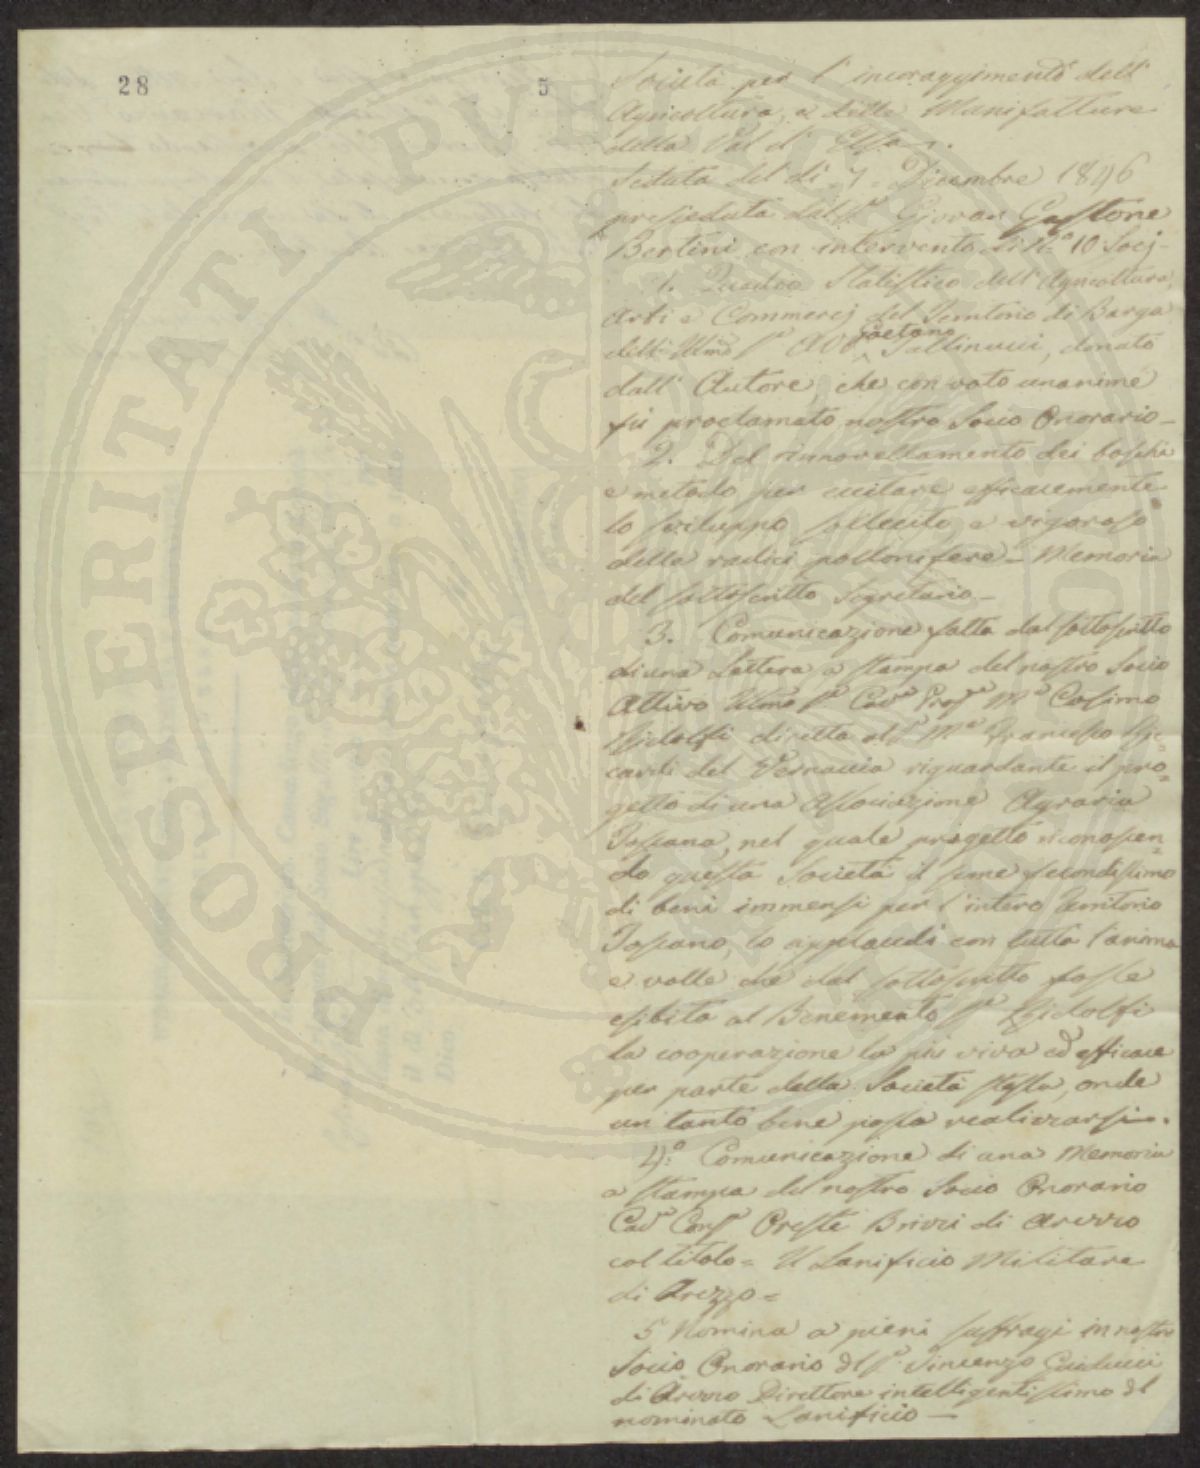 28
5
Società per l' incoraggimento dell'
Agricoltura, e delle Manifatture
della Val d' Elsa.
Seduta del dì 7. Dicembre 1846
presieduta dal Sr. Giovan Gastone
Bertini con intervento di No. 10 Socj-
1. Quadro Statistico dell' Agricoltura,
Arti e Commercj del Territorio di Barga
dell' Illmo Sr. Avv Gaetano , donato
dall' Autore, che con voto unanime
fù proclamato nostro Socio Onorario-
2. Del rinnovellamento dei boschi
e metodo per eccitare efficacemente
lo sviluppo sollecito, e vigoroso
delle radici pollonifere - Memoria
del sottoscritto Segretario-
3. Comunicazione fatta dal sottoscritto
di una Lettera a stampa del nostro Socio
Attivo Illmo Sr. Cavr. Profr. Me. Cosimo
Ridolfi diretta al Sr. Me. Francesco Ric=
cardi del Vernaccia riguardante il pro=
getto di una Associazione Agraria
Toscana, nel quale progetto riconoscen=
do questa Società il seme fecondissimo
di beni immensi per l' intero Territorio
Toscano, lo applaudì con tutta l'anima
e volle che dal sottoscritto fosse
esibita al Benemerito Sr. Ridolfi
la cooperazione la più viva ed efficace
per parte della Società stessa, onde
un tanto bene possa realizzarsi.
4.o Comunicazione di una Memoria
a stampa del nostro Socio Onorario
Cavr. Oreste Brizzi di Arezzo
col titolo= Il Lanificio Militare
di Arezzo=
5 Nomina a pieni suffragi in nostro
Socio Onorario del Sr. Vincenzo Guiducci
di Arezzo Direttore intelligentissimo del
nominato Lanificio-
PROSPERITATI PVBLICAE